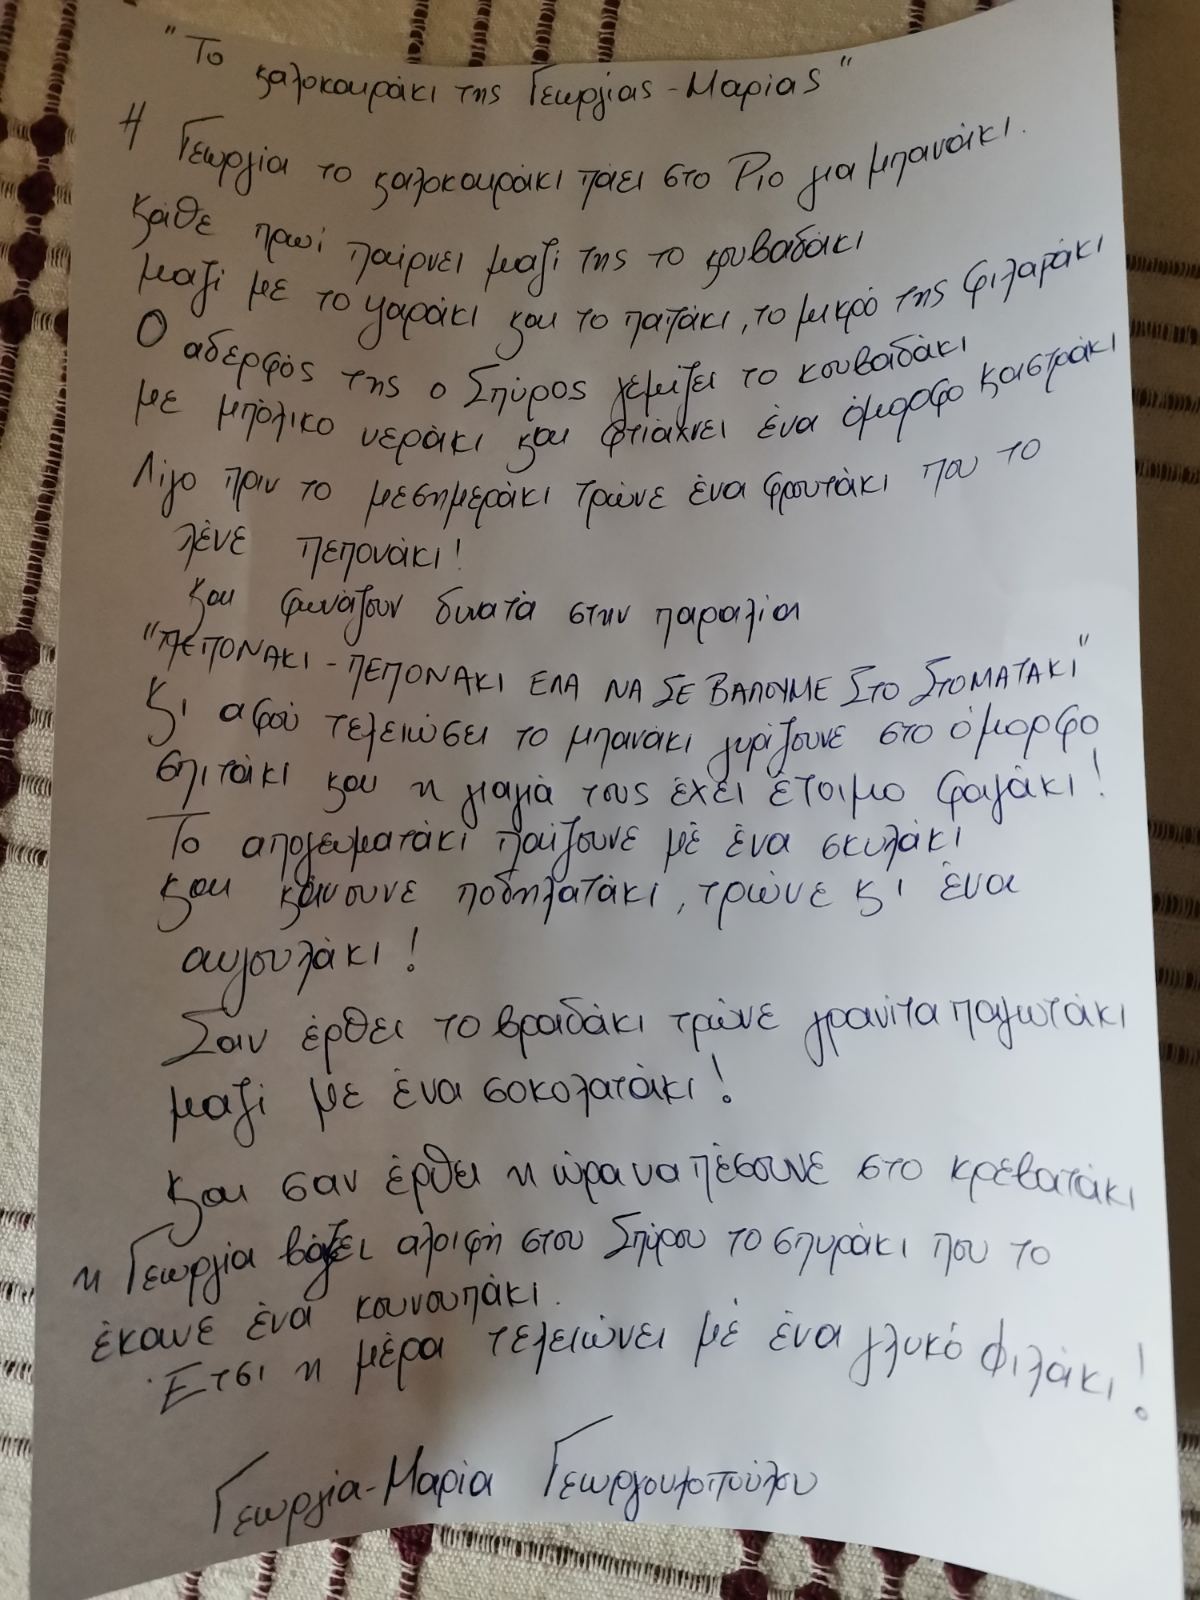 "Το
καλοκαιράκι της Γεωργίας - Μαρίας"
Η Γεωργία το καλοκαιράκι πάει στο Ρίο για μπανάκι.
Κάθε πρωί παίρνει μαζί της το κουβαδάκι
μαζί με το ψαράκι και το παπάκι, το μικρό της φιλαράκι
Ο αδερφός της ο Σπύρος γεμίζει το κουβαδάκι
με μπόλικο νεράκι και φτιάχνει ένα όμορφο καστράκι
Λίγο πριν το μεσημεράκι τρώνε ένα φρουτάκι που το
λένε πεπονάκι!
και φωνάζουν δυνατά στην παραλία
"ΠΕΠΟΝΑΚΙ - ΠΕΠΟΝΑΚΙ ΕΛΑ ΝΑ ΣΕ ΒΑΛΟΥΜΕ ΣΤΟ ΣΤΟΜΑΤΑΚΙ"
Κι αφού τελειώσει το μπανάκι γυρίζουνε στο όμορφο
σπιτάκι και η γιαγιά τους έχει έτοιμο φαγάκι!
Το απογευματάκι παίζουνε μέ ένα σκυλάκι
και κάνουνε ποδηλατάκι, τρώνε κι ένα
αυγουλάκι!
Σαν έρθει το βραδάκι τρώνε γρανίτα παγωτάκι
μαζί με ένα σοκολατάκι!
Και σαν έρθει η ώρα να πέσουνε στο κρεβατάκι
η Γεωργία βάζει αλοιφή στου Σπύρου το σπυράκι που το
έκανε ένα κουνουπάκι.
Έτσι η μέρα τελειώνει μέ ένα γλυκό φιλάκι!
Γεωργία-Μαρία